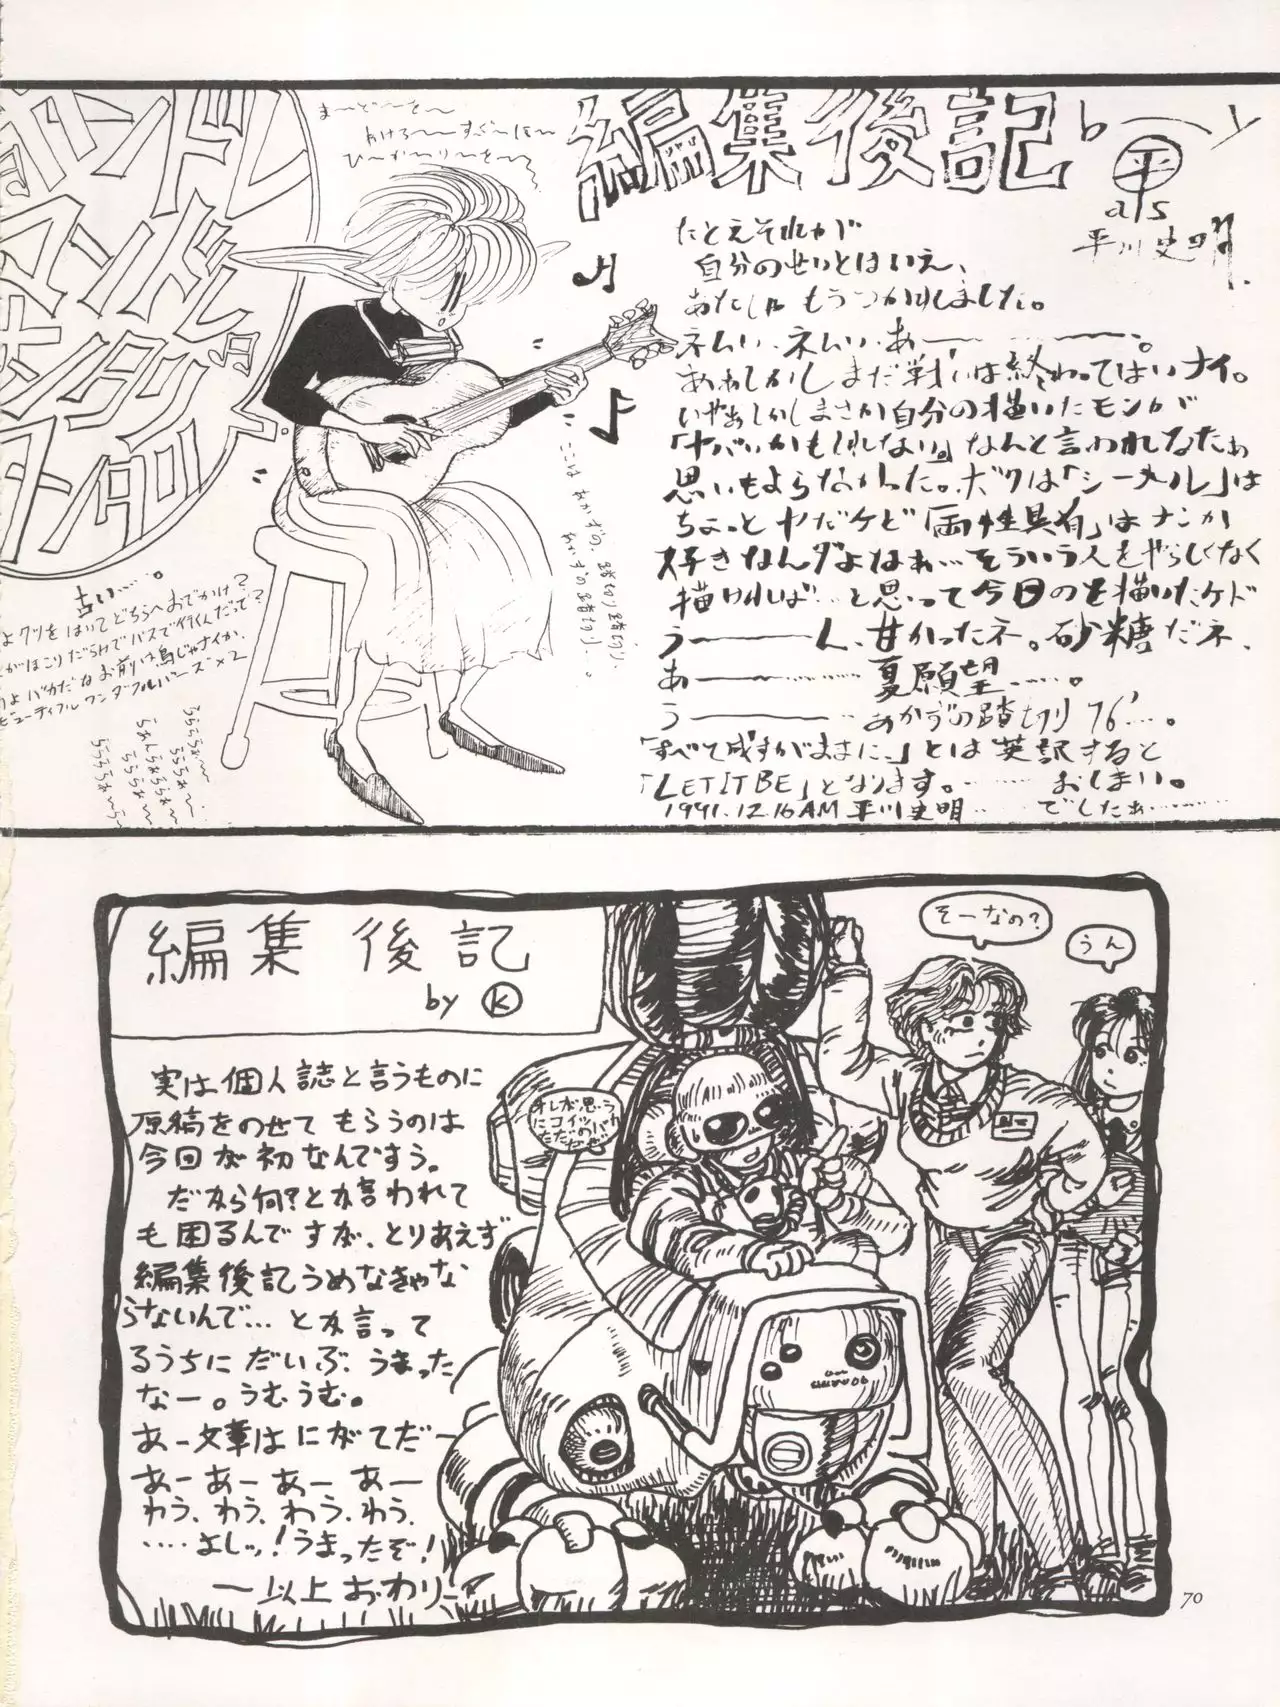 編集後記
by
平
als
平川史明
ま〜ど〜を〜
あけろ〜〜すぐ〜は〜
ひ〜が〜り〜を〜
たとえそれが
自分のせいとはいえ、
あたしはもうつかれました。
ネムい、ネムい、あ────────。
あぁしかしまだ戦いは終わってはいナイ。
いやあしかしまさか自分の描いたモンが
「ヤバいかもしれない。」なんと言われなたぁ
思いもよらなかった。ボクは「シーメール」は
ちょっとヤだケど「両性具有」はナンか
好きなんダよなぁ…そういう人をやらしくなく
描ければ…と思って今日のを描いたケド
う────ん、甘かったネ。砂糖だネ、
あ────………夏願望……。
う────────…あかずの踏切り76'…。
「すべて成すがままに、」とは英訳すると
「LET IT BE」となります。………おしまい。
1991.12.16AM 平川史明……でしたぁ………
ここはあかずの、踏切り踏切り、
あかずの踏切り…。
古い…。
よクツをはいてどちらへおでかけ?
がほこりだらけでバスで行くんだって?
よバカだなお前は鳥じゃナイか、
ビューティフルワンダフルバーズ×2
編集後記
by K
実は個人誌と言うものに
原稿をのせてもらうのは
今回が初なんですう。
だから何?とか言われて
も困るんですが、とりあえず
編集後記うめなきゃな
らないんで…とか言って
るうちにだいぶうまった
なー。うむうむ。
あー文章はにがてだー
あーあーあーあー
わう、わう、わう、わう、
‥‥よしッ!うまったぞ!
─以上おわり─
そーなの?
うん
オレが思う
にコイツは
ただのバカ
だぜ
70